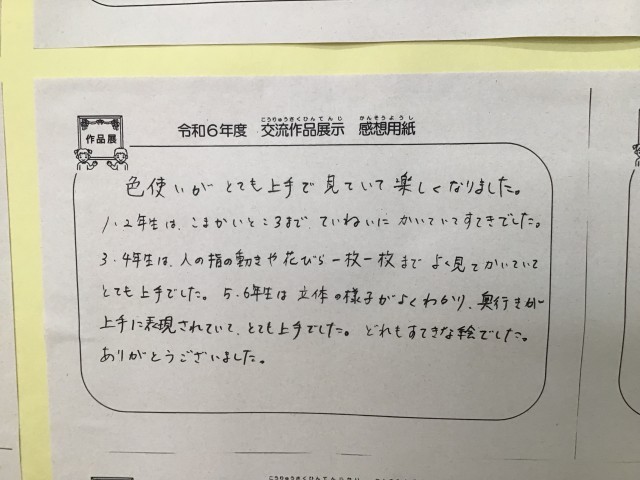 作品展
令和6年度 交流作品展示 感想用紙
こうりゅうさくひんてんじ かんそうようし
色使いがとても上手で見ていて楽しくなりました。
1・2年生は、こまかいところまで、ていねいにかいていてすてきでした。
3・4年生は、人の指の動きや花びら一枚一枚までよく見てかいていて
とても上手でした。5・6年生は立体の様子がよくわかり、奥行きが
上手に表現されていて、とても上手でした。どれもすてきな絵でした。
ありがとうございました。